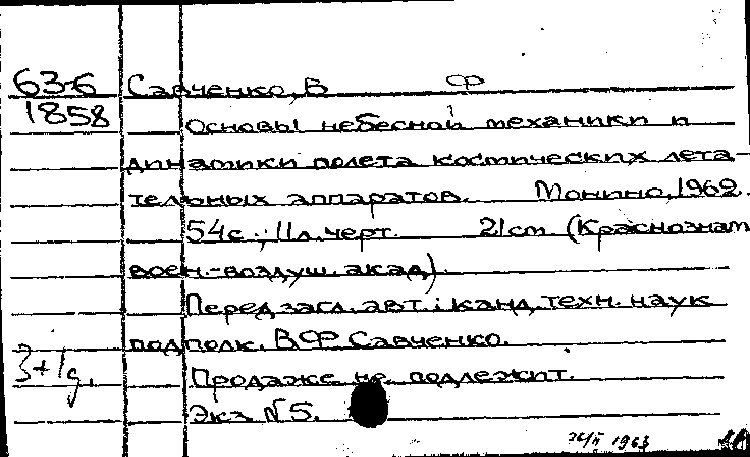 63-6 Савченко, В Ф
1858
Основы небесной механики и
динамики полета космических лета-
тельных аппаратов. Монино, 1962.
54с.; 11л.черт. 21cm (Краснознам
воен.-воздуш. акад).
Перед загл. авт.: канд. техн. наук
подполк. В.Ф Савченко.
3+1д. Продаже не подлежит.
Экз №5.
1963